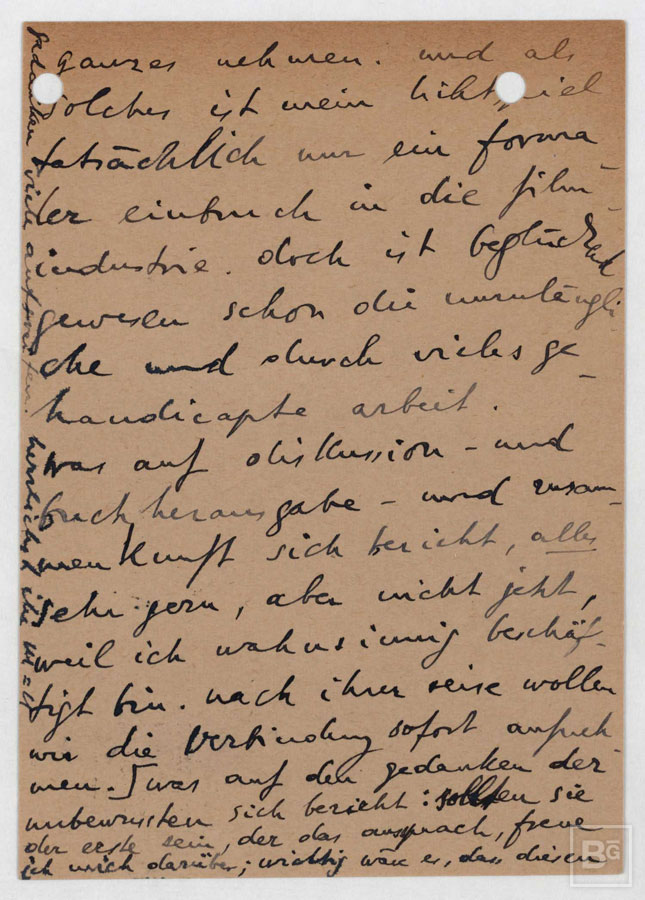 ganzes nehmen. und als
solches ist mein lichtspiel
tatsächlich nur ein forma-
ler einbruch in die film-
industrie. doch ist beglückend
gewesen schon die unzulängli-
che und durch vieles ge-
handicapte arbeit.
was auf diskussion - und
buchherausgabe - und zusam-
menkunft sich bezieht, alles
sehr gern, aber nicht jetzt,
weil ich wahnsinnig beschäf-
tigt bin. nach ihrer reise wollen
wir die verbindung sofort aufneh
men.] was auf den gedanken der
unbewussten sich bezieht: sollten sie
der erste sein, der das aussprach, freue
ich mich darüber; wichtig wäre es, dass diesen
gedanken viele aufgreifen. herzlichst ihr m=n
BG